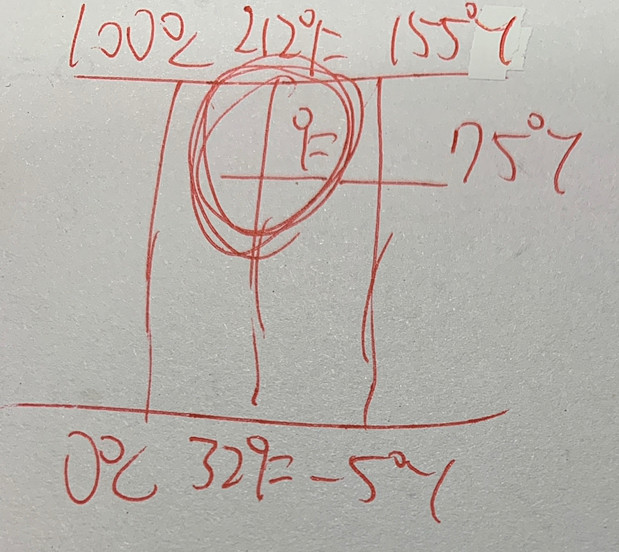 100°C 212°F 155°Y
°F 75°Y
0°C 32°F -5°Y